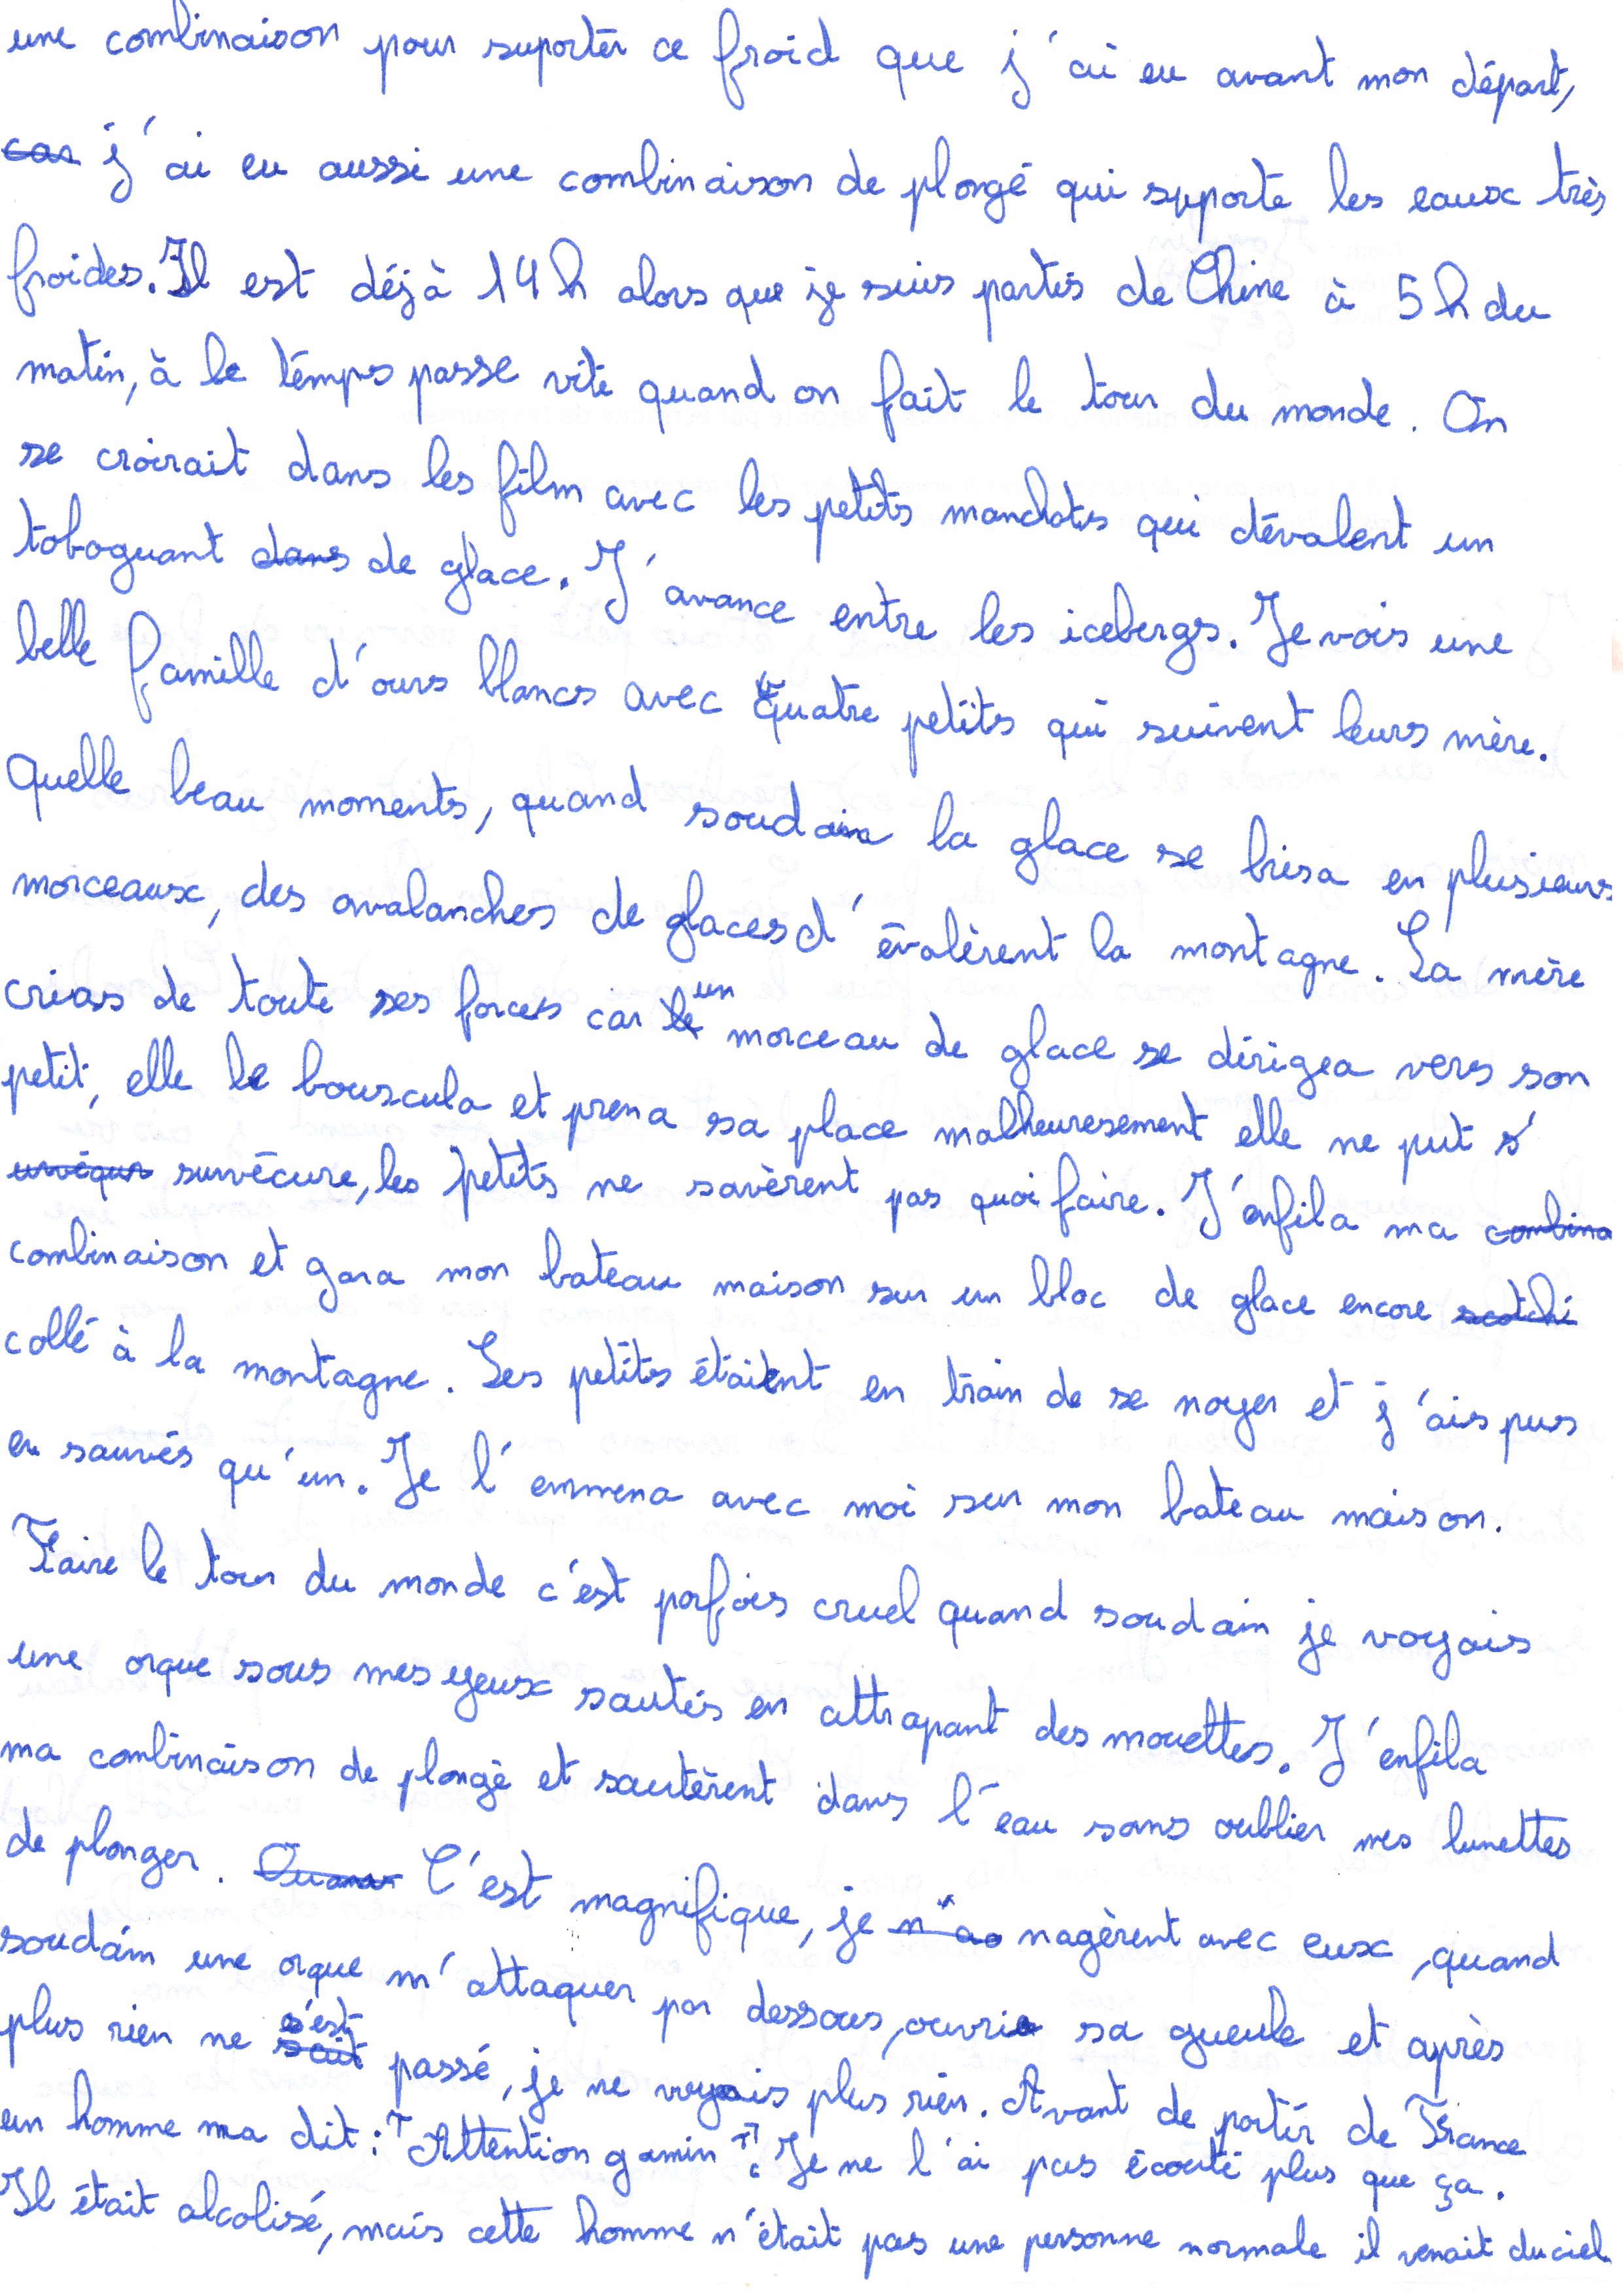 une combinaison pour suporter ce froid que j'ai eu avant mon départ,
car j'ai eu aussi une combinaison de plongé qui spporte les eaux très
froides. Il est déjà 14h alors que je suis partis de Chine à 5h du
matin, à le temps passe vite quand on fait le tour du monde. On
se croirait dans les film avec les petits manchots qui dévalent un
toboguant dans de glace. J'avance entre les icebergs. Je vois une
belle famille d'ours blancs avec quatre petits qui suivent leurs mère.
Quelle beau moments, quand soudain la glace se brisa en plusieurs
morceaux, des avalanches de glaces d'évalèrent la montagne. La mère
crias de toute ses forces car le un morceau de glace se dirigea vers son
petit, elle le bouscula et prena sa place malheuresement elle ne put s'
survécure, les petits ne savèrent pas quoi faire. J'enfila ma combina
combinaison et gara mon bateau maison sur un bloc de glace encore scotché
collé à la montagne. Les petits étaient en train de se noyer et j'ais pus
en sauvés qu'un. Je l'emmena avec moi sur mon bateau maison.
Faire le tour du monde c'est parfois cruel quand soudain je voyais
une orque sous mes yeux sautés en attrapant des mouettes. J'enfila
ma combinaison de plongé et sautèrent dans l'eau sans oublier mes lunettes
de plonger. C'est magnifique, je nagèrent avec eux, quand
soudain une orque m'attaquer par dessous, ouvrie sa gueule et après
plus rien ne s'est passé, je ne voyais plus rien. Avant de partir de France
un homme ma dit : "Attention gamin". Je ne l'ai pas écouté plus que ça.
Il était alcolisé, mais cette homme n'était pas une personne normale il venait du ciel